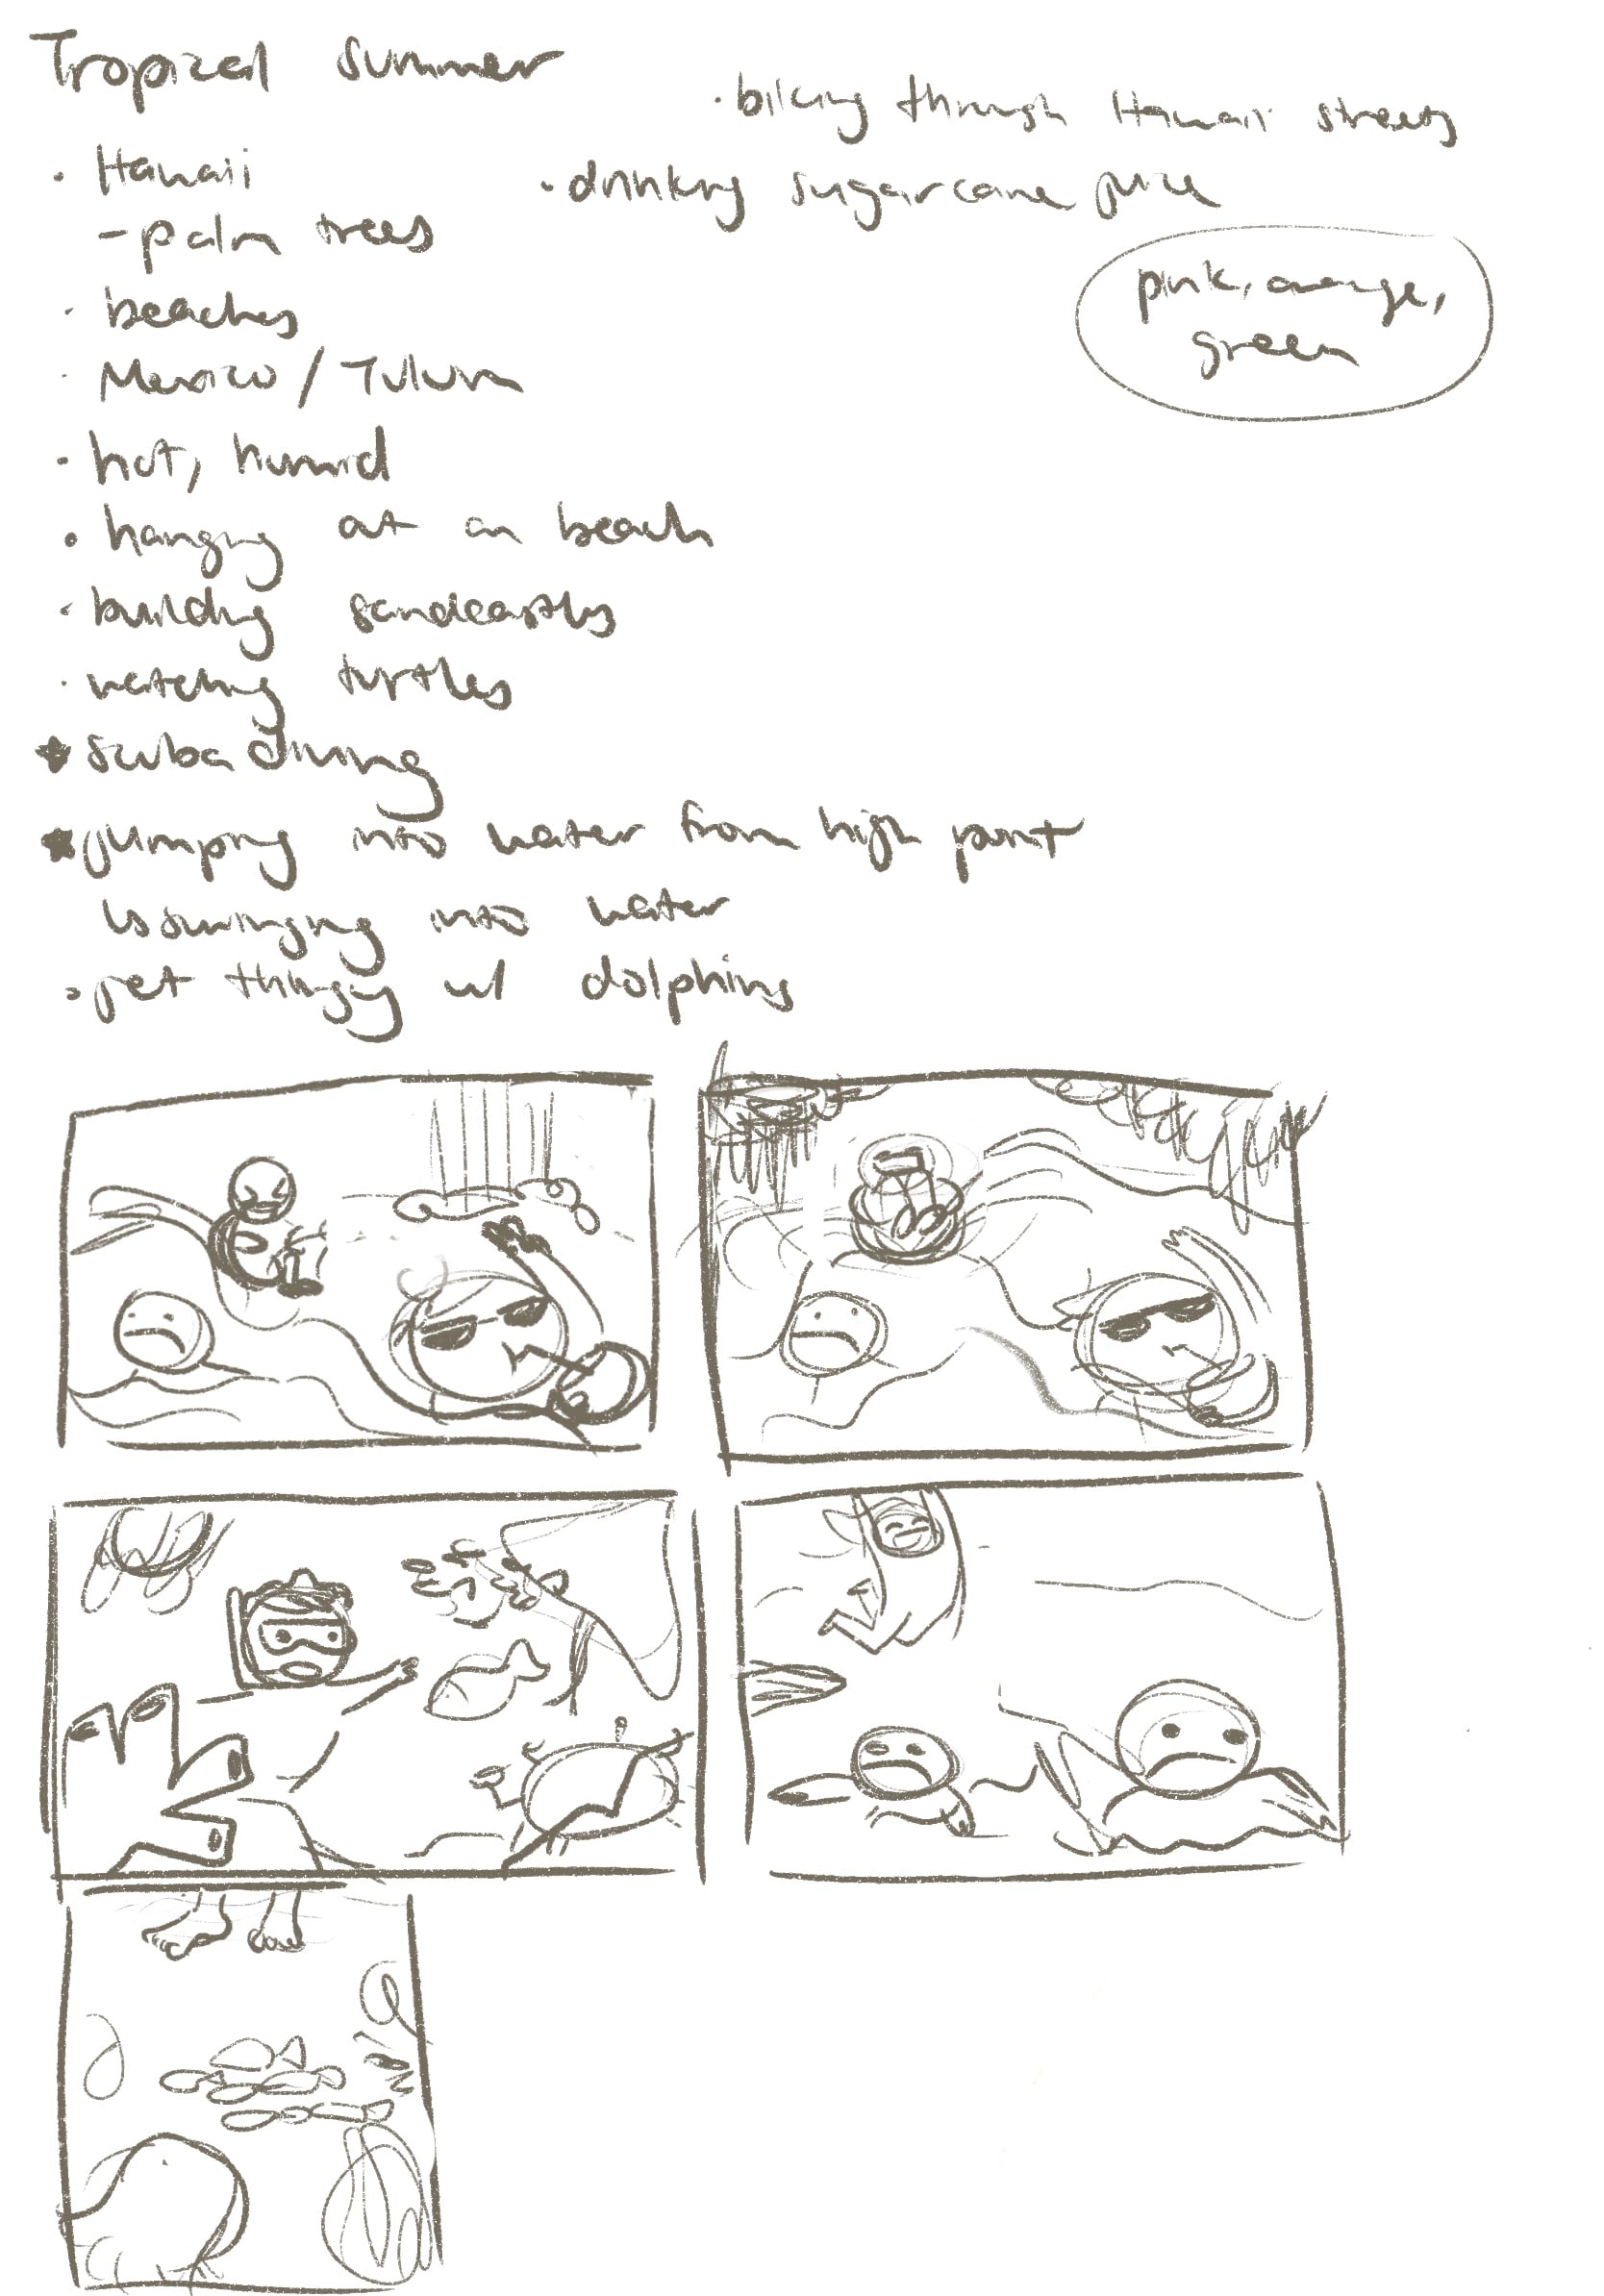 Tropical summer
• Hawaii
- palm trees
• beaches
• Mexico / Tulum
• hot, humid
• hanging at an beach
• building sandcastles
• watching turtles
★ scuba diving
★ jumping into water from high point
↳ swinging into water
• jet thingy w/ dolphins
• biking through Hawaii streets
• drinking sugarcane juice
pink, orange,
green